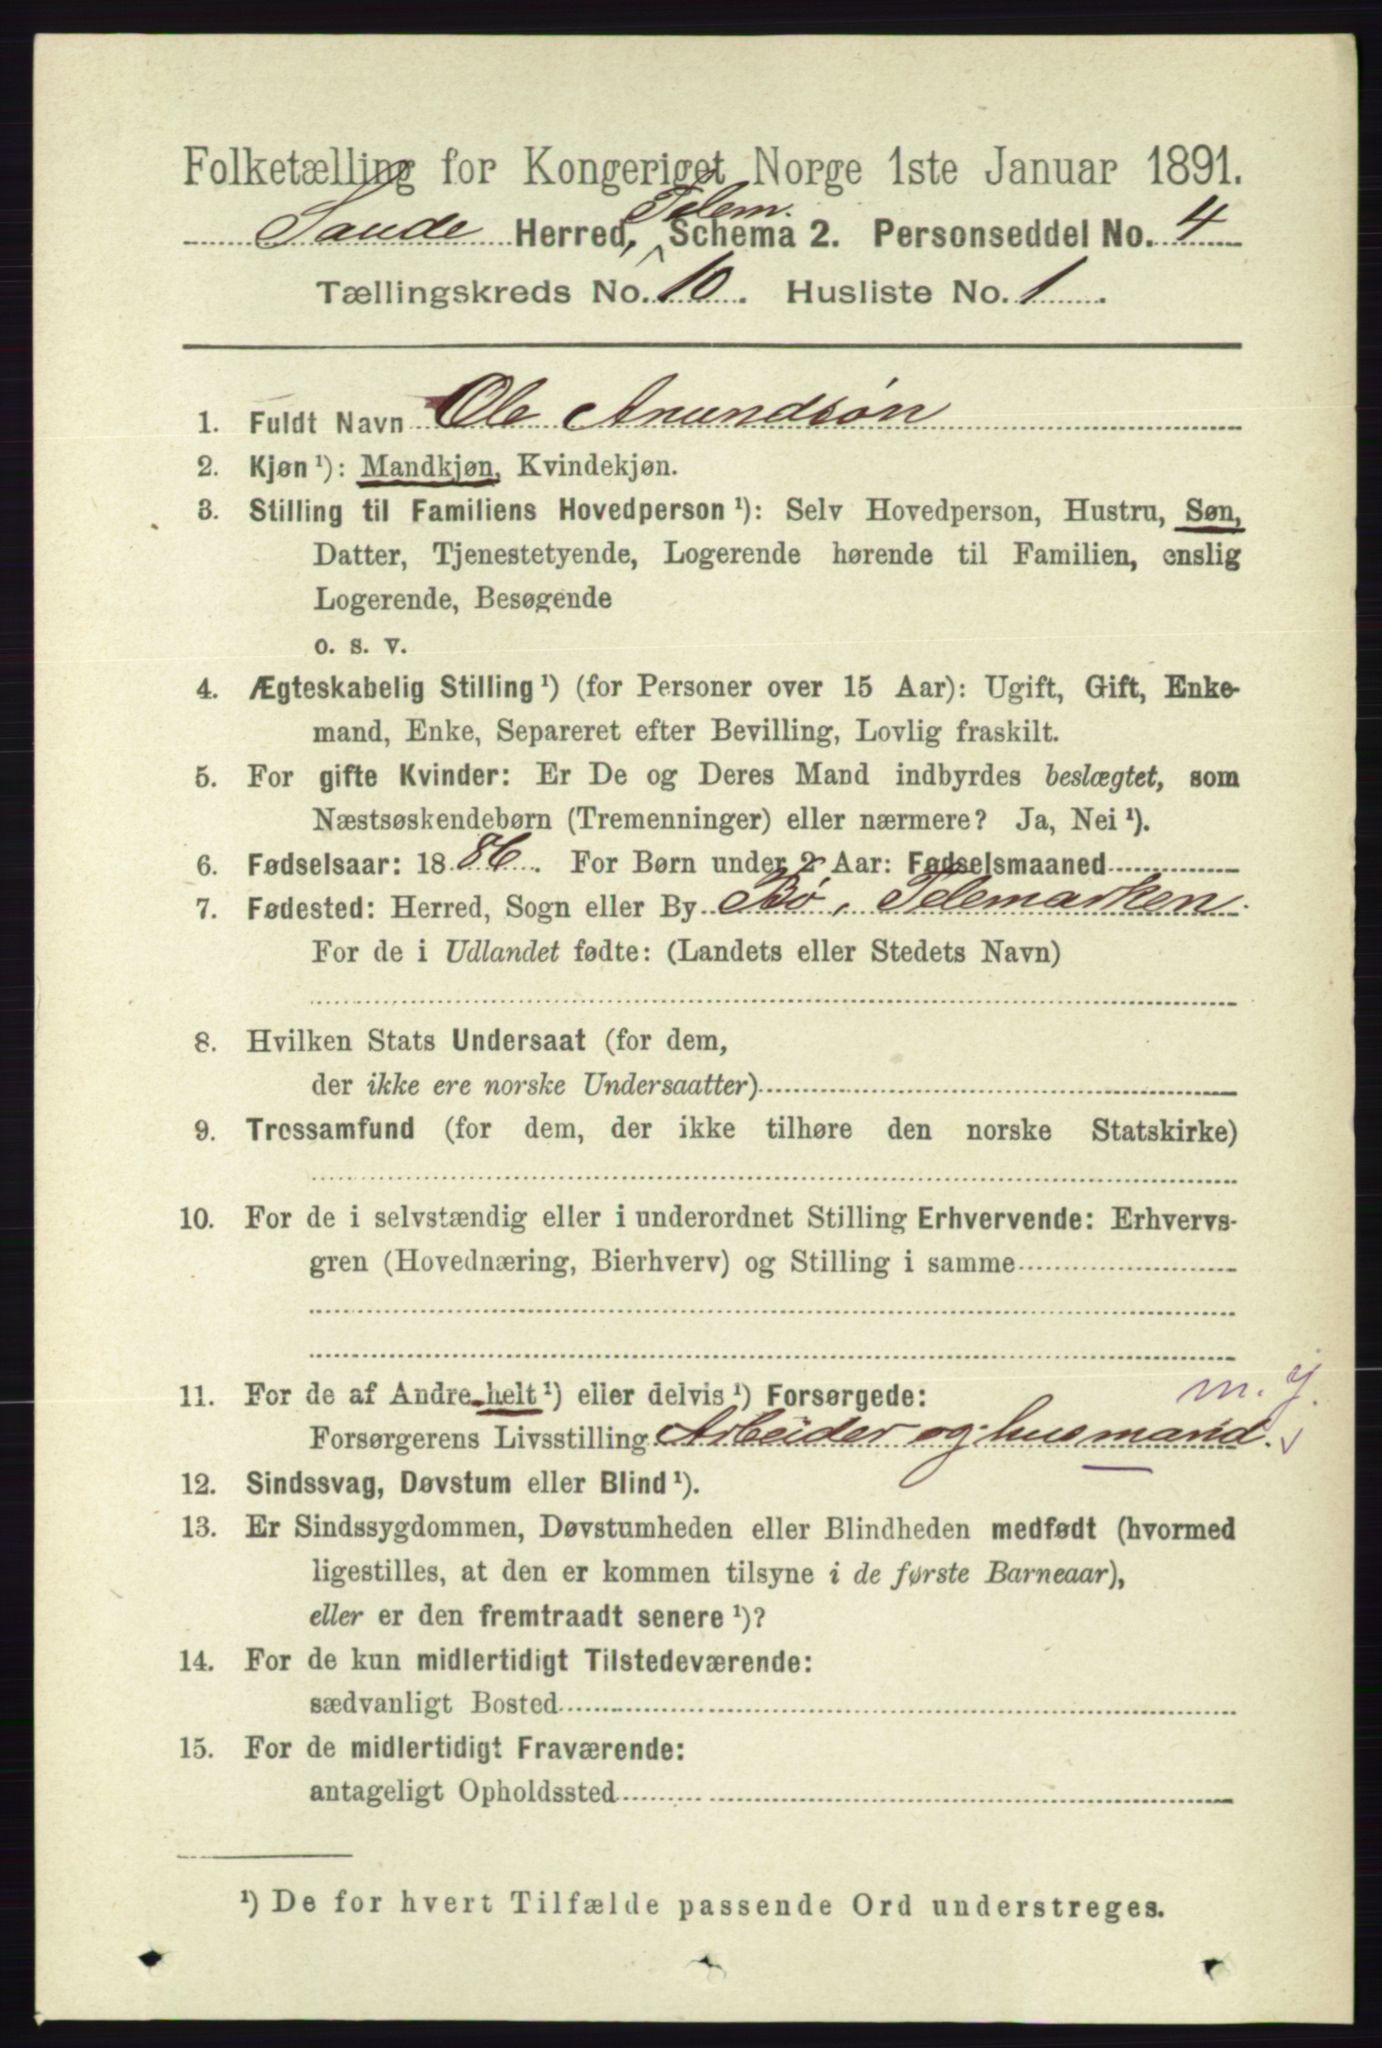 Folketælling for Kongeriget Norge 1ste Januar 1891.
Saude Herred, Telem. Schema 2. Personseddel No. 4
Tællingskreds No. 10. Husliste No. 1.
1. Fuldt Navn Ole Anundsøn
2. Kjøn ¹): Mandkjøn, Kvindekjøn.
3. Stilling til Familiens Hovedperson ¹): Selv Hovedperson, Hustru, Søn,
Datter, Tjenestetyende, Logerende hørende til Familien, enslig
Logerende, Besøgende
o. s. v.
4. Ægteskabelig Stilling ¹) (for Personer over 15 Aar): Ugift, Gift, Enke-
mand, Enke, Separeret efter Bevilling, Lovlig fraskilt.
5. For gifte Kvinder: Er De og Deres Mand indbyrdes beslægtet, som
Næstsøskendebørn (Tremenninger) eller nærmere? Ja, Nei ¹).
6. Fødselsaar: 1886. For Børn under 2 Aar: Fødselsmaaned
7. Fødested: Herred, Sogn eller By Bø, Telemarken.
For de i Udlandet fødte: (Landets eller Stedets Navn)
8. Hvilken Stats Undersaat (for dem,
der ikke ere norske Undersaatter)
9. Trossamfund (for dem, der ikke tilhøre den norske Statskirke)
10. For de i selvstændig eller i underordnet Stilling Erhvervende: Erhvervs-
gren (Hovednæring, Bierhverv) og Stilling i samme
11. For de af Andre helt ¹) eller delvis ¹) Forsørgede: m. j.
Forsørgerens Livsstilling Arbeider og husmand.
12. Sindssvag, Døvstum eller Blind ¹).
13. Er Sindssygdommen, Døvstumheden eller Blindheden medfødt (hvormed
ligestilles, at den er kommen tilsyne i de første Barneaar),
eller er den fremtraadt senere ¹)?
14. For de kun midlertidigt Tilstedeværende:
sædvanligt Bosted
15. For de midlertidigt Fraværende:
antageligt Opholdssted
¹) De for hvert Tilfælde passende Ord understreges.